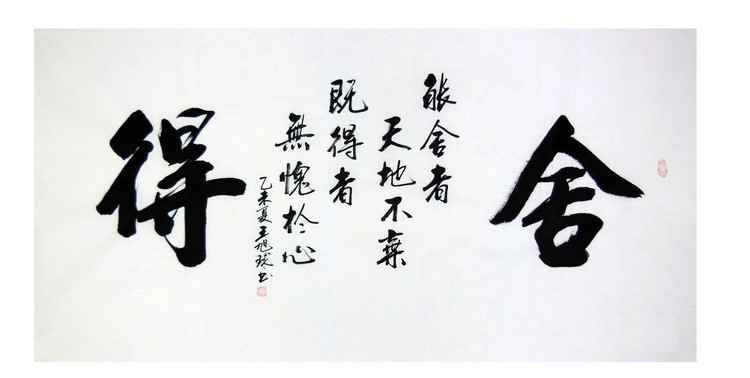 舍
能舍者
天地不棄
既得者
無愧於心
得
乙未夏王旭